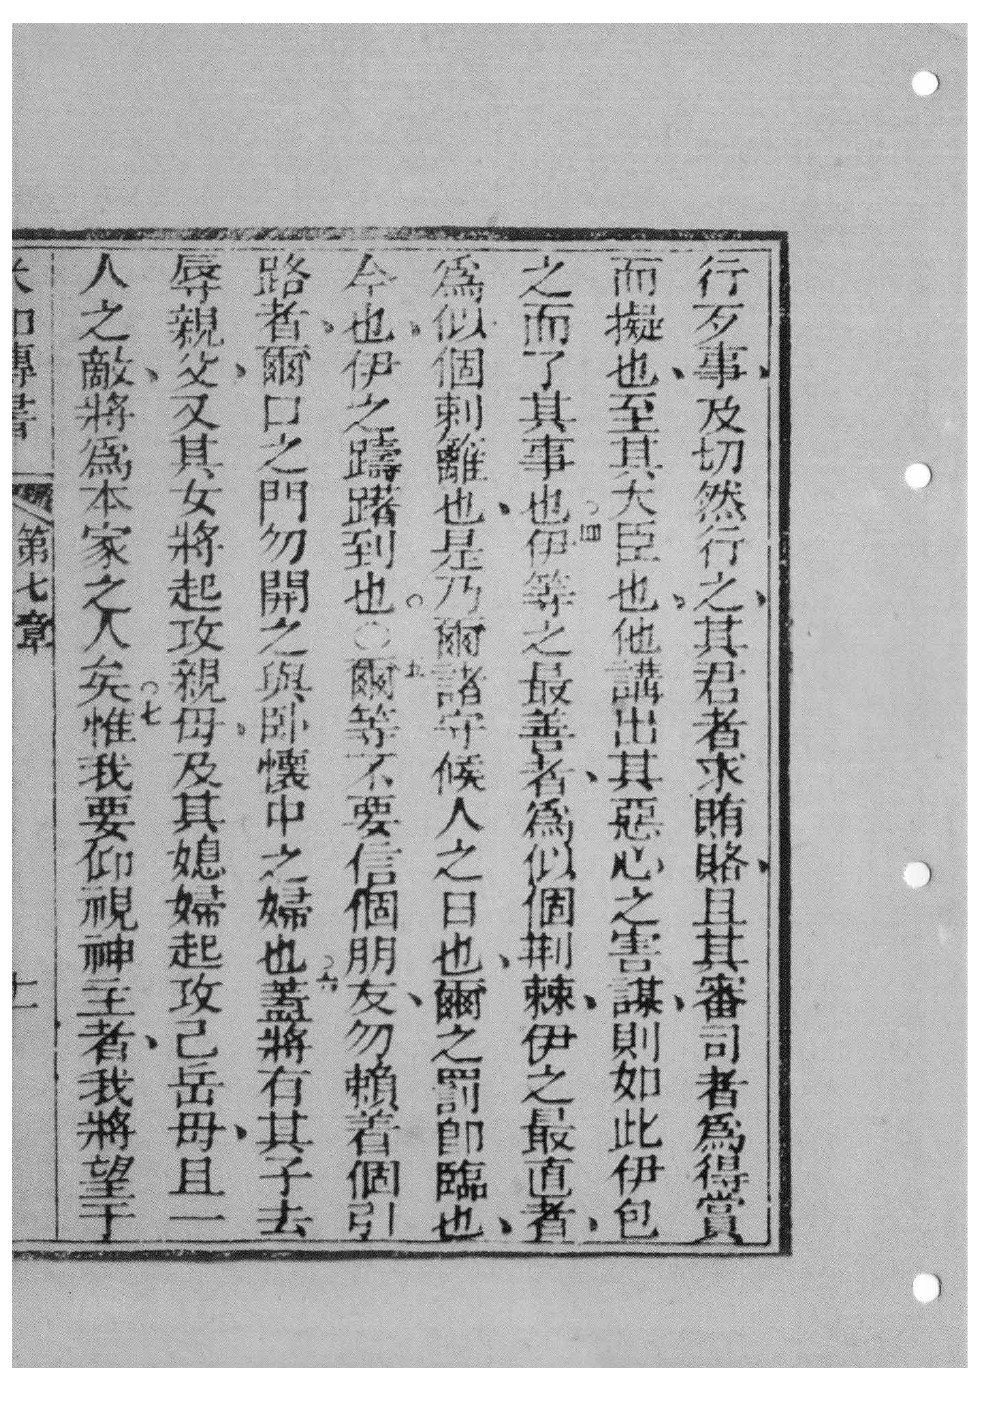 行歹事、及切然行之、其君者求賄賂、且其審司者為得賞
而擬也、至其大臣也、他講出其惡心之害謀、則如此伊包
之而了其事也○四伊等之最善者、為似個荆棘、伊之最直者、
為似個刺籬也、是乃爾諸守候人之日也、爾之罰卽臨也、
今也、伊之躊躇到也○○五爾等不要信個朋友、勿賴着個引
路者、爾口之門勿開之與卧懷中之婦也○六蓋將有其子去
辱親父、又其女將起攻親母、及其媳婦起攻己岳母、且一
人之敵、將為本家之人矣○七惟我要仰視神主者、我將望于
米加專書
第七章
十一